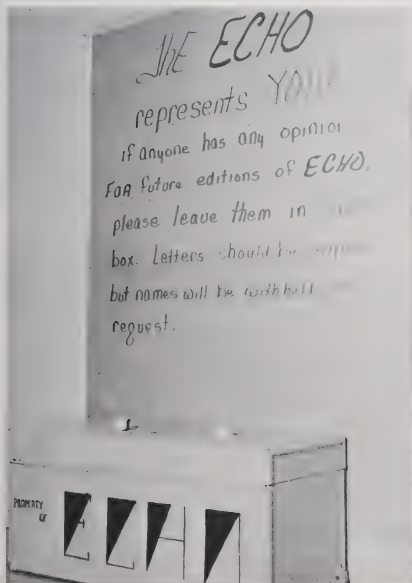 the ECHO
represents YOU
if anyone has any opinion
FOR future editions of ECHO,
please leave them in
box. Letters should be
but names will be withheld
request.
PROPERTY
OF
ECHO